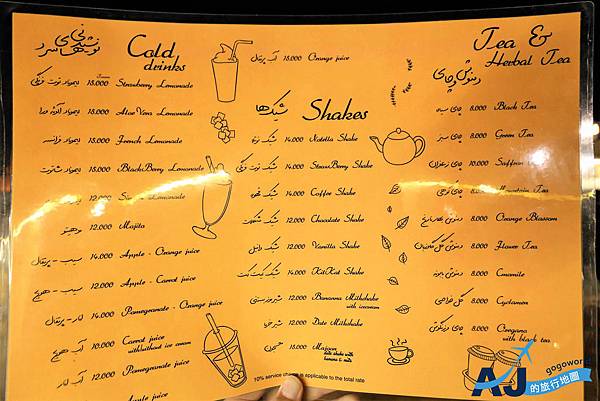 نوشیدنی های سرد
Cold drinks
15.000 Strawberry Lemonade
15.000 Aloe Vera Lemonade
15.000 French Lemonade
15.000 BlackBerry Lemonade
12.000
موهیتو 12.000 Mojito
سیب - پرتقال 14.000 Apple - Orange juice
سیب - هویج 12.000 Apple - Carrot juice
انار - پرتقال 14.000 Pomegranate - Orange juice
آب هویج 10.000 Carrot juice
with/without ice cream
آب انار 12.000 Pomegranate juice
Apple juice
آب پرتقال 15.000 Orange juice
شیک ها
Shakes
14.000 Nutella Shake
شیک توت فرنگی 14.000 StrawBerry Shake
شیک قهوه 14.000 Coffee Shake
شیک شکلات 12.000 Chocolate Shake
شیک وانیل 12.000 Vanilla Shake
شیک کیت کت 14.000 KitKat Shake
شیر موز بستنی 12.000 Bananna Milkshake
with icecream
شیر خرما 12.000 Date Milkshake
معجون 15.000 Majoon
date shake with
banana & milk
10% service charge is applicable to the total rate
Tea &
Herbal Tea
دمنوش و چای
چای سیاه 8.000 Black Tea
چای سبز 8.000 Green Tea
چای زعفران 10.000 Saffron Tea
چای کوهی 8.000 Mountain Tea
دمنوش بهارنارنج 8.000 Orange Blossom
دمنوش گل گاوزبان 8.000 Flower Tea
دمنوش بابونه 8.000 Camomile
8.000 Cyclamen
8.000 Oregano
with black tea
AJ
gogowork
的旅行地圖